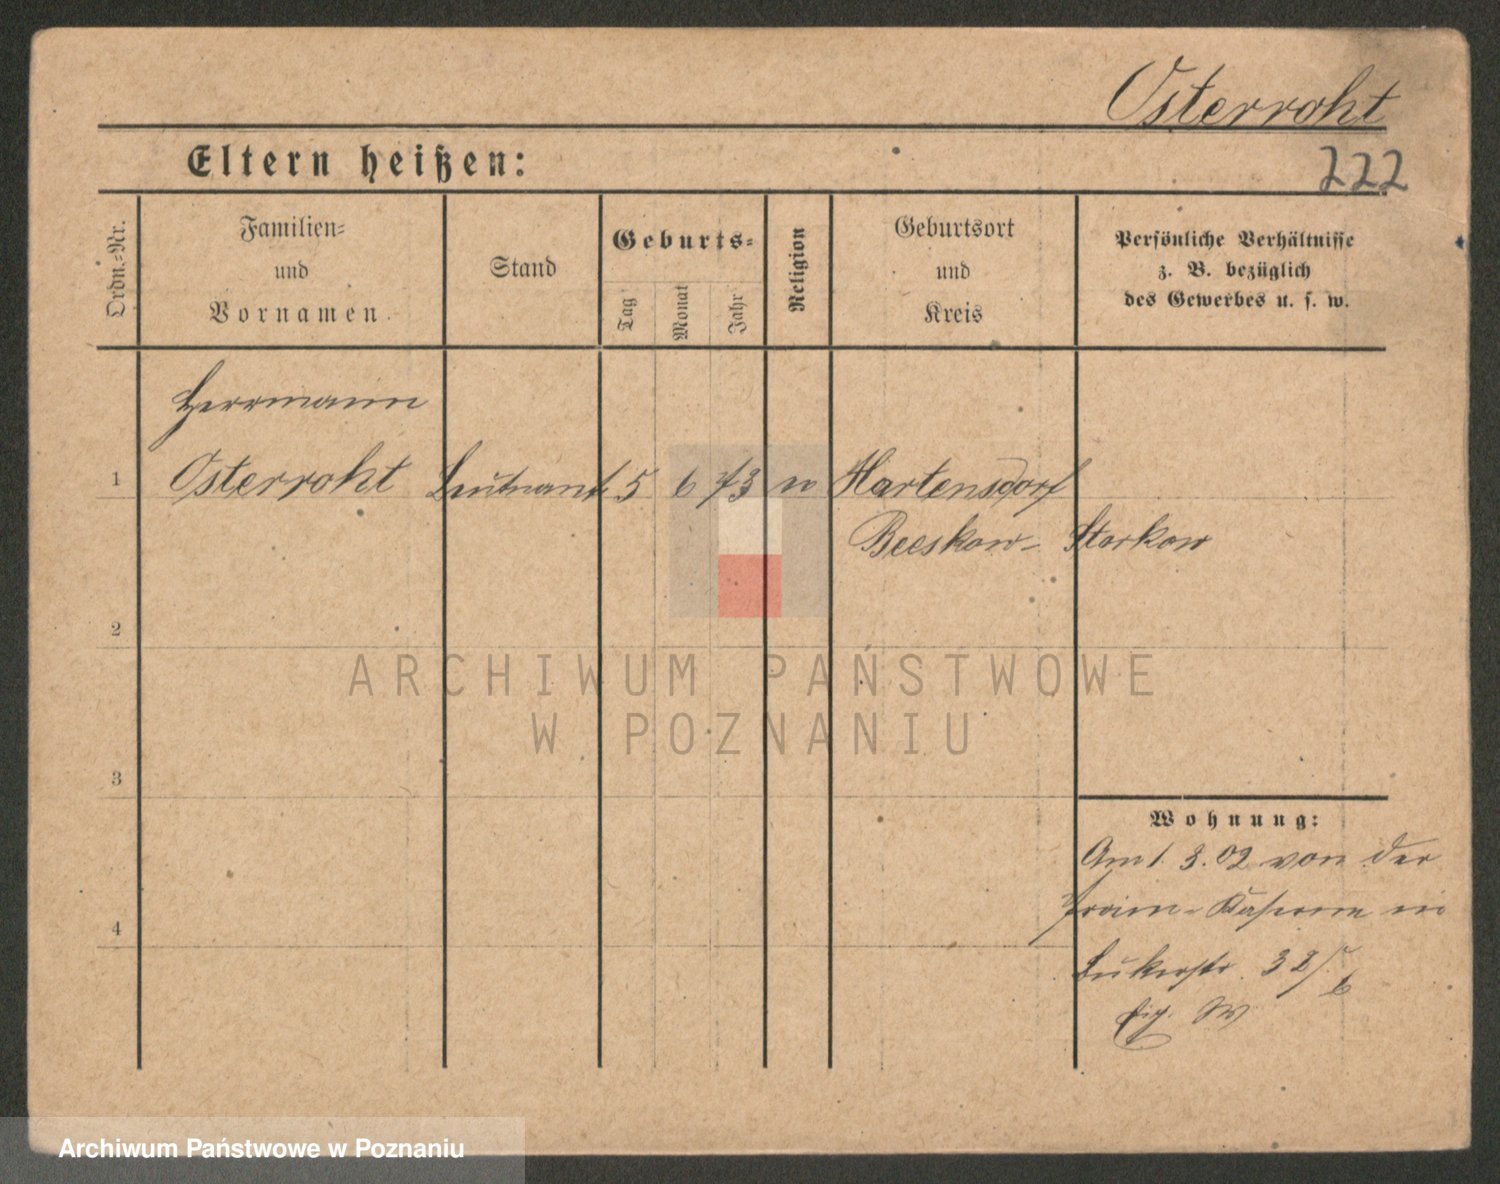 Osterroht
222
Eltern heißen:
Ordn.-Nr.
Familien-
und
Vornamen.
Stand
Geburts-
Tag
Monat
Jahr
Religion
Geburtsort
und
Kreis
Persönliche Verhältnisse
z. B. bezüglich
des Gewerbes u. s. w.
Herrmann
1 Osterroht Leutnant 5 6 73 Hartensdorf
Beeskow- Storkow
2
ARCHIWUM PAŃSTWOWE
W POZNANIU
3
Wohnung:
Am 1. 3. 02 von der
Train-Kaserne in
4
32/6
Archiwum Państwowe w Poznaniu